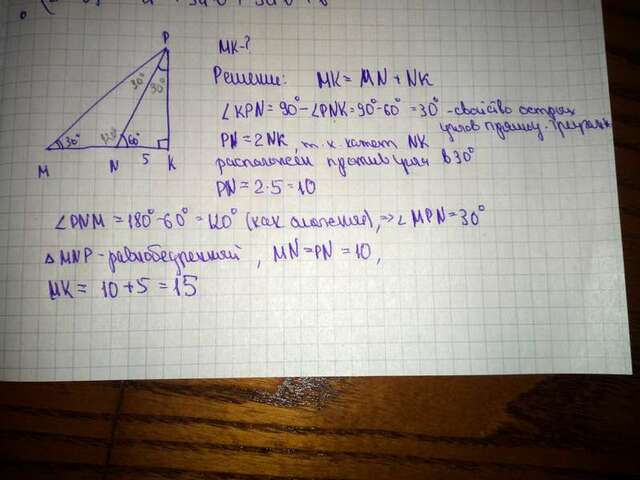 P
30°
30°
30°
120°
60°
M
N
5
K
MK-?
Решение: MK = MN + NK
∠KPN = 90° - ∠PNK = 90° - 60° = 30° - свойство острых
углов прямоуг. треугольн
PN = 2NK, т.к. катет NK
расположен против угла в 30°
PN = 2·5 = 10
∠PNM = 180° - 60° = 120° (как смежные), => ∠MPN = 30°
△MNP - равнобедренный, MN = PN = 10,
MK = 10 + 5 = 15